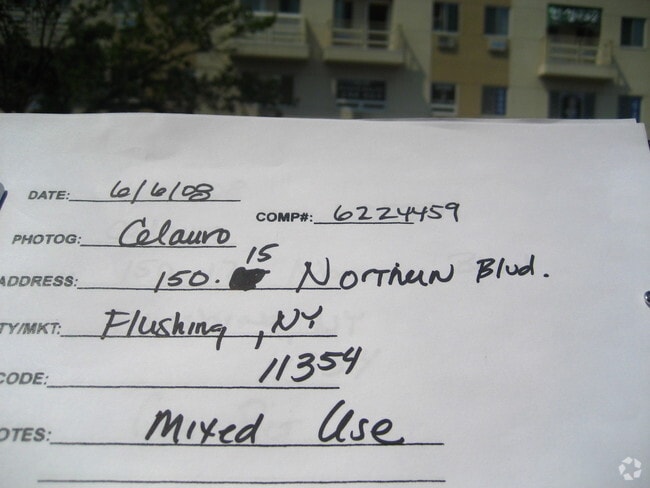 DATE: 6/6/08
COMP#: 6224459
PHOTOG: Celauro
ADDRESS: 150. 15 Northern Blvd.
TY/MKT: Flushing, NY
CODE: 11354
OTES: Mixed Use